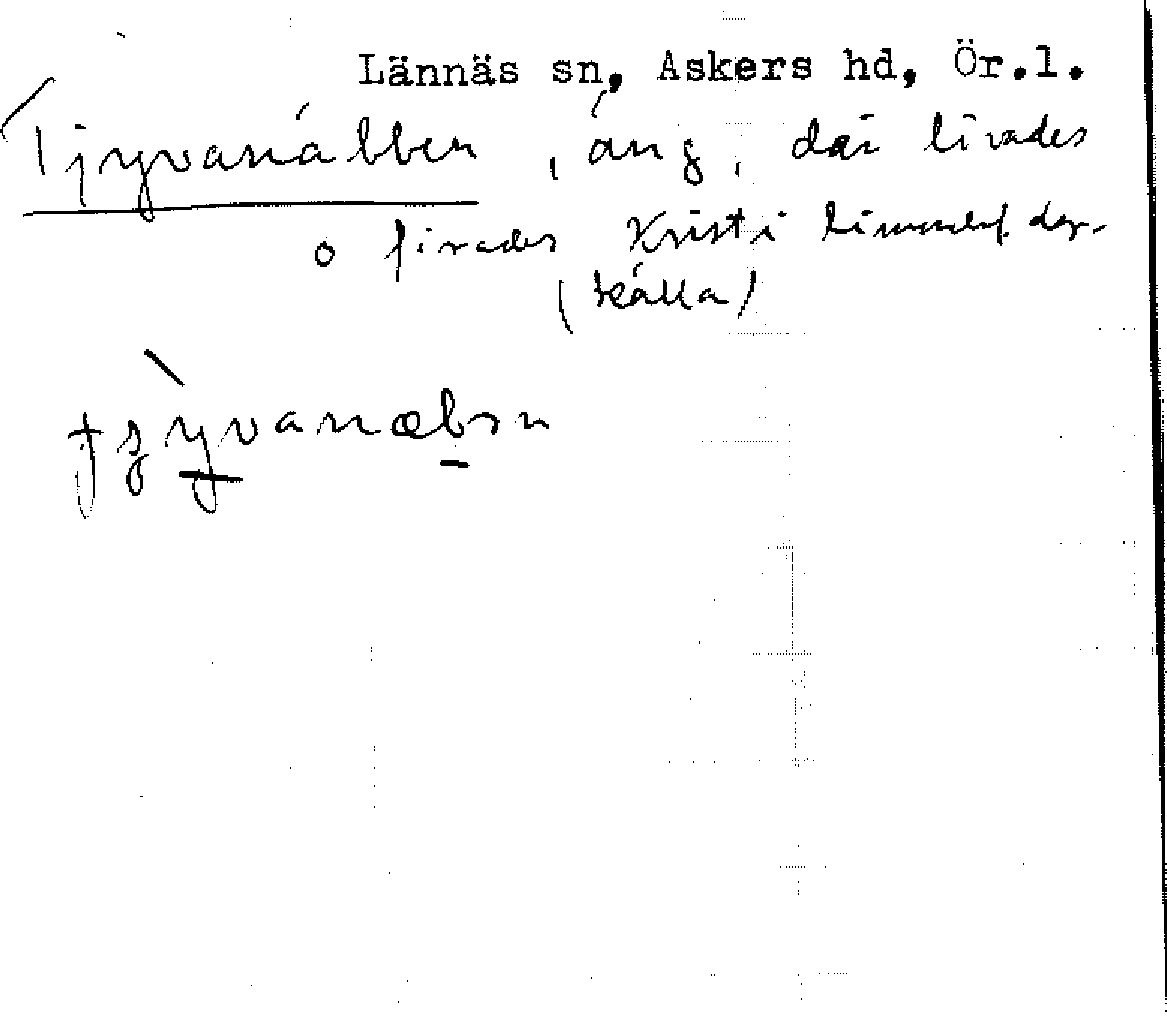 Lännäs sn, Askers hd, Ör.l.
Tjyvanäbben, äng, där livades
o firades Kristi himmelsf. dag.
(källa)